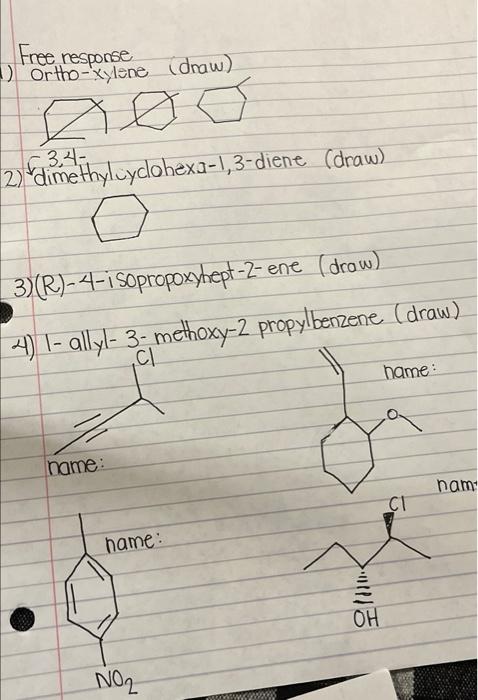 Free response
1) Ortho-xylene (draw)
3,4-
2) dimethylcyclohexa-1,3-diene (draw)
3)(R)-4-isopropoxyhept-2-ene (draw)
4) 1-allyl-3-methoxy-2 propylbenzene (draw)
Cl
name:
O
name:
nam
Cl
name:
OH
NO2